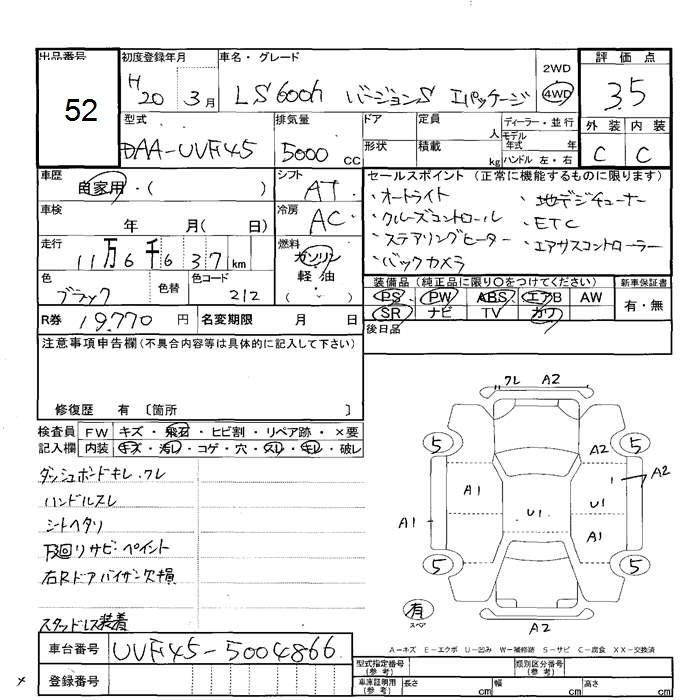 出品番号 52
初度登録年月 H20 3月
車名・グレード LS600h バージョンS Iパッケージ
2WD
4WD
評価点 3.5
外装 内装
C C
型式 DAA-UVF45
排気量 5000 CC
ドア 定員 人
形状 積載 kg
ディーラー・並行
モデル年式 年
ハンドル 左・右
車歴 自家用・( )
シフト AT
車検 年 月( 日)
冷房 AC
走行 11万6千637km
燃料 ガソリン
軽・油
( )
色 ブラック 色替 色コード 212
R券 19,770円 名変期限 月 日
セールスポイント (正常に機能するものに限ります)
・オートライト ・地デジチューナー
・クルーズコントロール ・ETC
・ステアリングヒーター ・エアサスコントローラー
・バックカメラ
装備品 (純正品に限り○をつけてください) 新車保証書
PS PW ABS エアB AW 有・無
SR ナビ TV カワ
後日品
注意事項申告欄(不具合内容等は具体的に記入して下さい)
修復歴 有 〔箇所 〕
検査員 FW キズ・飛石・ヒビ割・リペア跡・×要
記入欄 内装 キズ・汚レ・コゲ・穴・スレ・キレ・破レ
ダッシュボードキレ、クレ
ハンドルスレ
シートヘタリ
下回リサビ・ペイント
右Rドアバイザー欠損
スタッドレス装着
クレ A2
5 5
A2 A2
A1 U1 U1
A1 A1
5 5
有
スペア
A2
A-キズ E-エクボ U-凹み W-補修跡 S-サビ C-腐食 XX-交換済
車台番号 UVF45-5004866
登録番号
型式指定番号(参考) 類別区分番号(参考)
車庫証明用(参考) 長さ cm 幅 cm 高さ cm